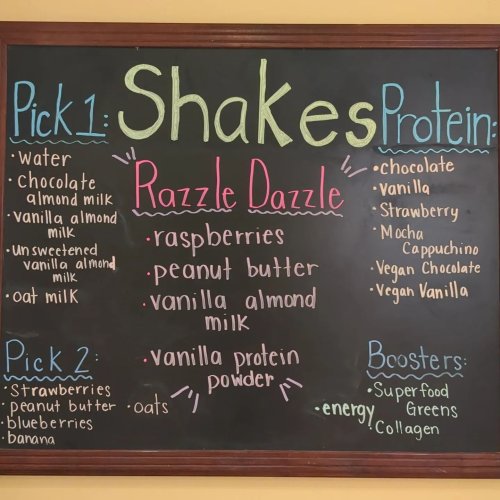 Shakes
Pick 1:
• water
• chocolate
almond milk
• vanilla almond
milk
• unsweetened
vanilla almond
milk
• oat milk
Razzle Dazzle
• raspberries
• peanut butter
• vanilla almond
milk
• vanilla protein
powder
Protein:
• chocolate
• vanilla
• Strawberry
• Mocha
Cappuchino
• Vegan Chocolate
• Vegan Vanilla
Pick 2:
• Strawberries
• peanut butter
• blueberries
• banana
• oats
Boosters:
• Superfood
Greens
• energy
Collagen